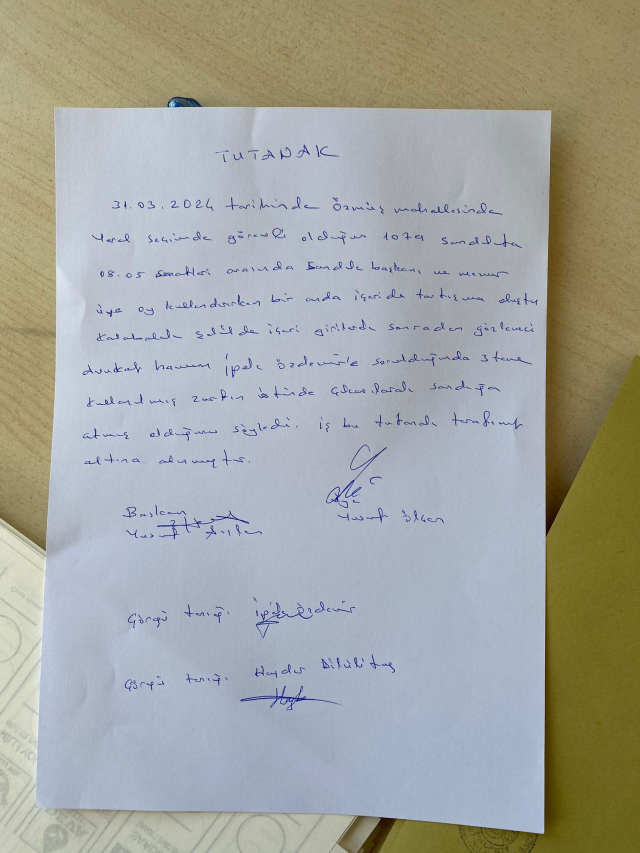 TUTANAK
31.03.2024 tarihinde Özmüş mahallesinde
Yerel seçimde görevli olduğum 1079 sandıkta
08.05 saatleri arasında Sandık başkanı ve memur
üye oy kullandırırken bir anda içeride tartışma oluştu
Kalabalık şekilde içeri girilerek sonradan gözlemci
Avukat hanım İpek Özdemir'e sorulduğunda 3 tane
kullanılmış zarfın üstünde çıkarılarak sandığa
atmış olduğunu söyledi. iş bu tutanak tarafımıza
altına alınmıştır.
Başkan
Yusuf Arslan
Üye
Yusuf
Görgü tanığı: İpek Özdemir
Görgü tanığı: Haydar